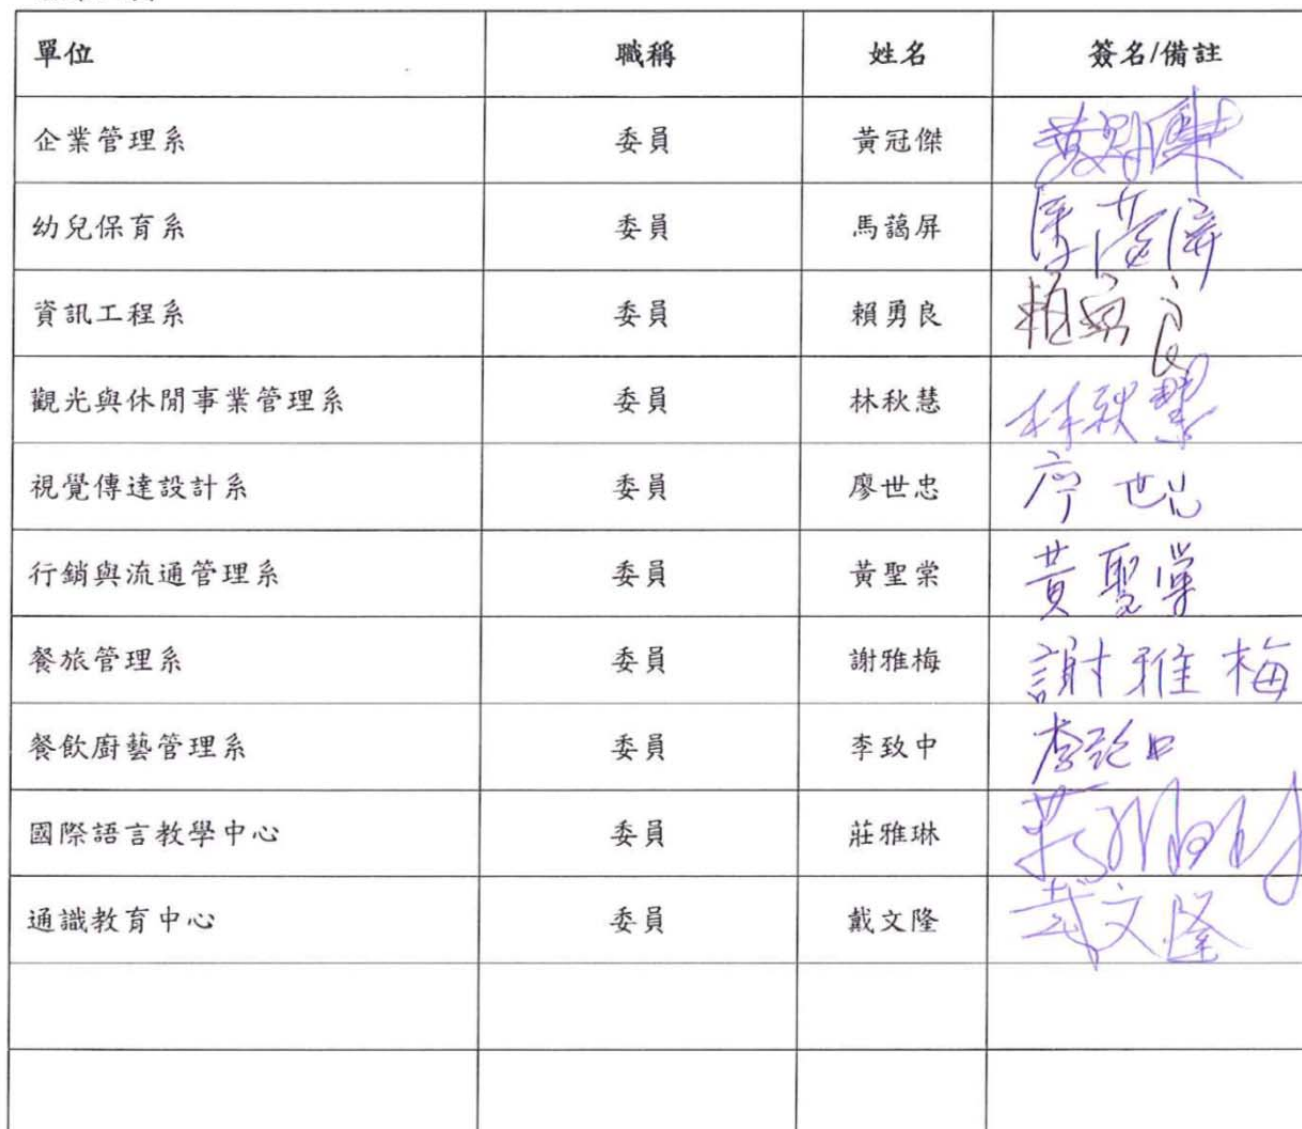 單位 職稱 姓名 簽名/備註
企業管理系 委員 黃冠傑 黃冠傑
幼兒保育系 委員 馬藹屏
資訊工程系 委員 賴勇良
觀光與休閒事業管理系 委員 林秋慧 林秋慧
視覺傳達設計系 委員 廖世忠 廖世忠
行銷與流通管理系 委員 黃聖棠 黃聖棠
餐旅管理系 委員 謝雅梅 謝雅梅
餐飲廚藝管理系 委員 李致中 李致中
國際語言教學中心 委員 莊雅琳
通識教育中心 委員 戴文隆 戴文隆